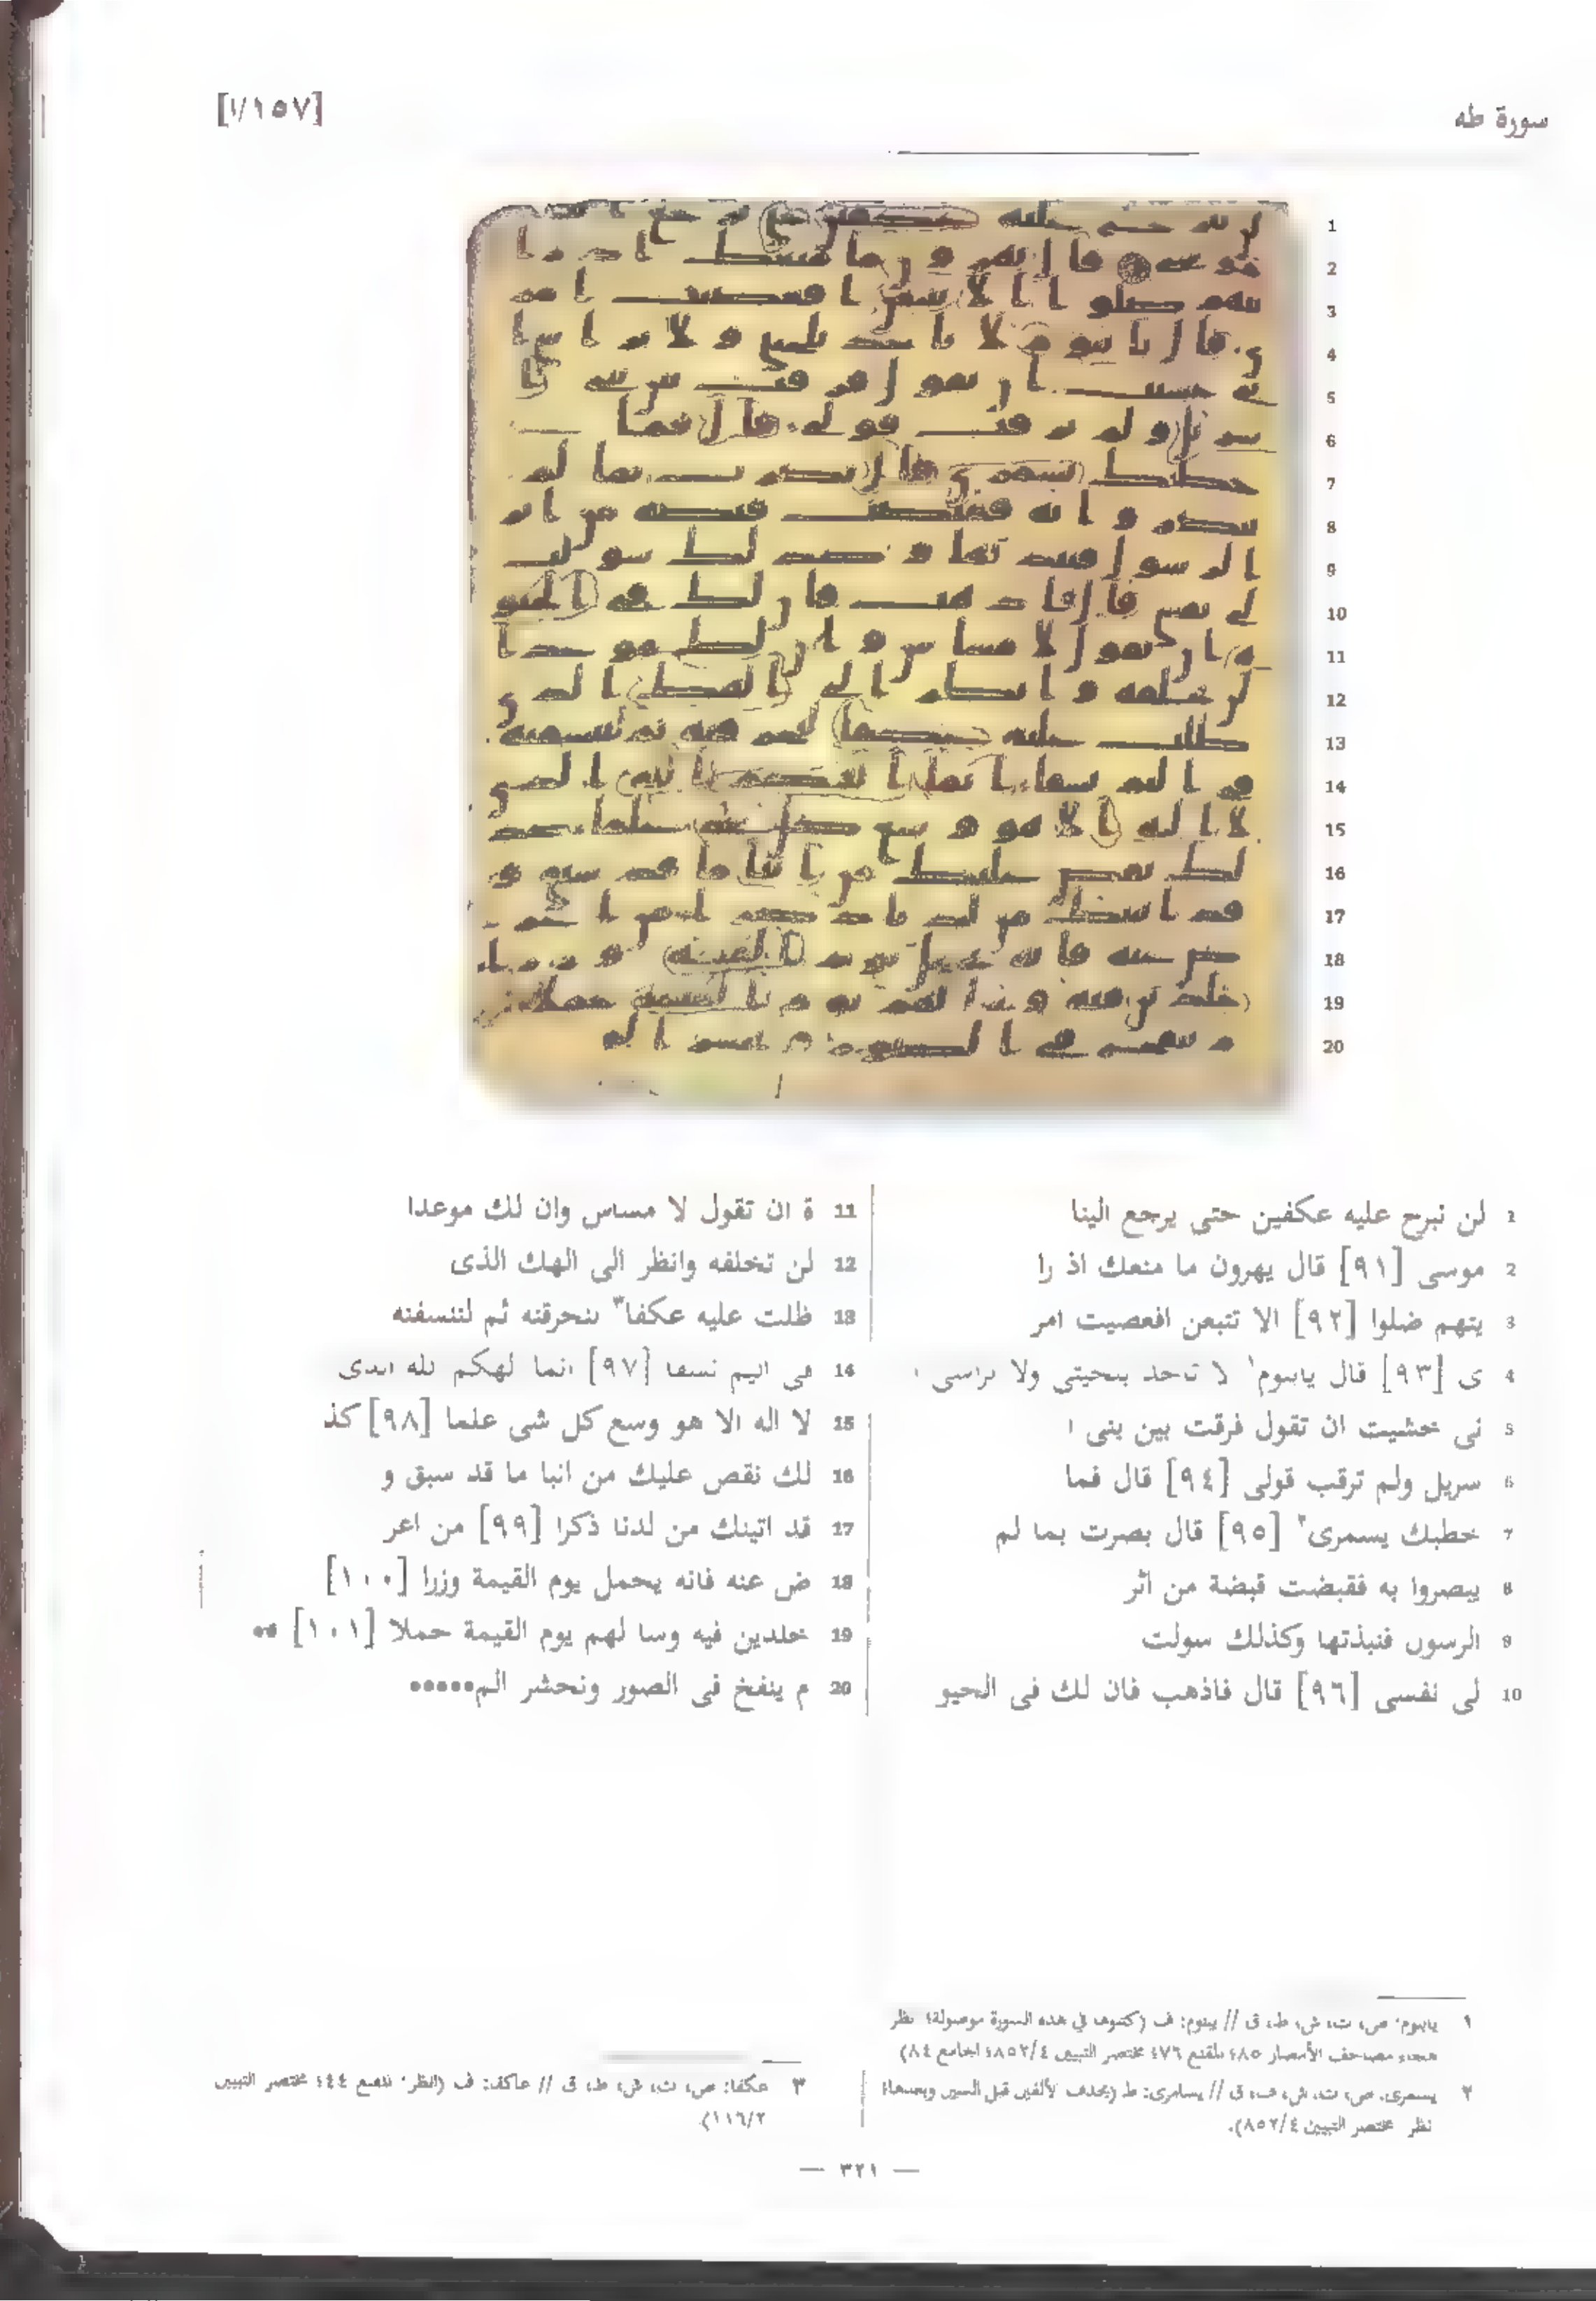 سورة طه
[١/١٥٧]
1 لن نبرح عليه عكفين حتى يرجع الينا
2 موسى [٩١] قال يهرون ما منعك اذ را
3 يتهم ضلوا [٩٢] الا تتبعن افعصيت امر
4 ى [٩٣] قال يابنوم١ لا تاخذ بلحيتى ولا براسى ا
5 نى خشيت ان تقول فرقت بين بنى ا
6 سريل ولم ترقب قولى [٩٤] قال فما
7 خطبك يسمرى٢ [٩٥] قال بصرت بما لم
8 يبصروا به فقبضت قبضة من اثر
9 الرسول فنبذتها وكذلك سولت
10 لى نفسى [٩٦] قال فاذهب فان لك فى الحيو
11 ة ان تقول لا مساس وان لك موعدا
12 لن تخلفه وانظر الى الهك الذى
13 ظلت عليه عكفا٣ لنحرقنه ثم لننسفنه
14 فى اليم نسفا [٩٧] انما لهكم لله الذى
15 لا اله الا هو وسع كل شى علما [٩٨] كذ
16 لك نقص عليك من انبا ما قد سبق و
17 قد اتينك من لدنا ذكرا [٩٩] من اعر
18 ض عنه فانه يحمل يوم القيمة وزرا [١٠٠]
19 خلدين فيه وسا لهم يوم القيمة حملا [١٠١] ••
20 م ينفخ فى الصور ونحشر الم•••••
١ يابنوم: ص، ت، ش، ط، ق // يبنوم: ف (كتبوها في هذه السورة موصولة؛ نظر
هجاء مصاحف الأمصار ٨٥؛ المقنع ٧٦؛ مختصر التبيين ٨٥٢/٤؛ الجامع ٨٤)
٢ يسمرى: ص، ت، ش، ف، ق // يسامرى: ط (بحذف الألفين قبل السين وبعدها؛
نظر مختصر التبيين ٨٥٢/٤).
٣ عكفا: ص، ت، ش، ط، ق // عاكفا: ف (انظر: المقنع ٤٤؛ مختصر التبيين
١١٦/٢).
— ٣٢١ —